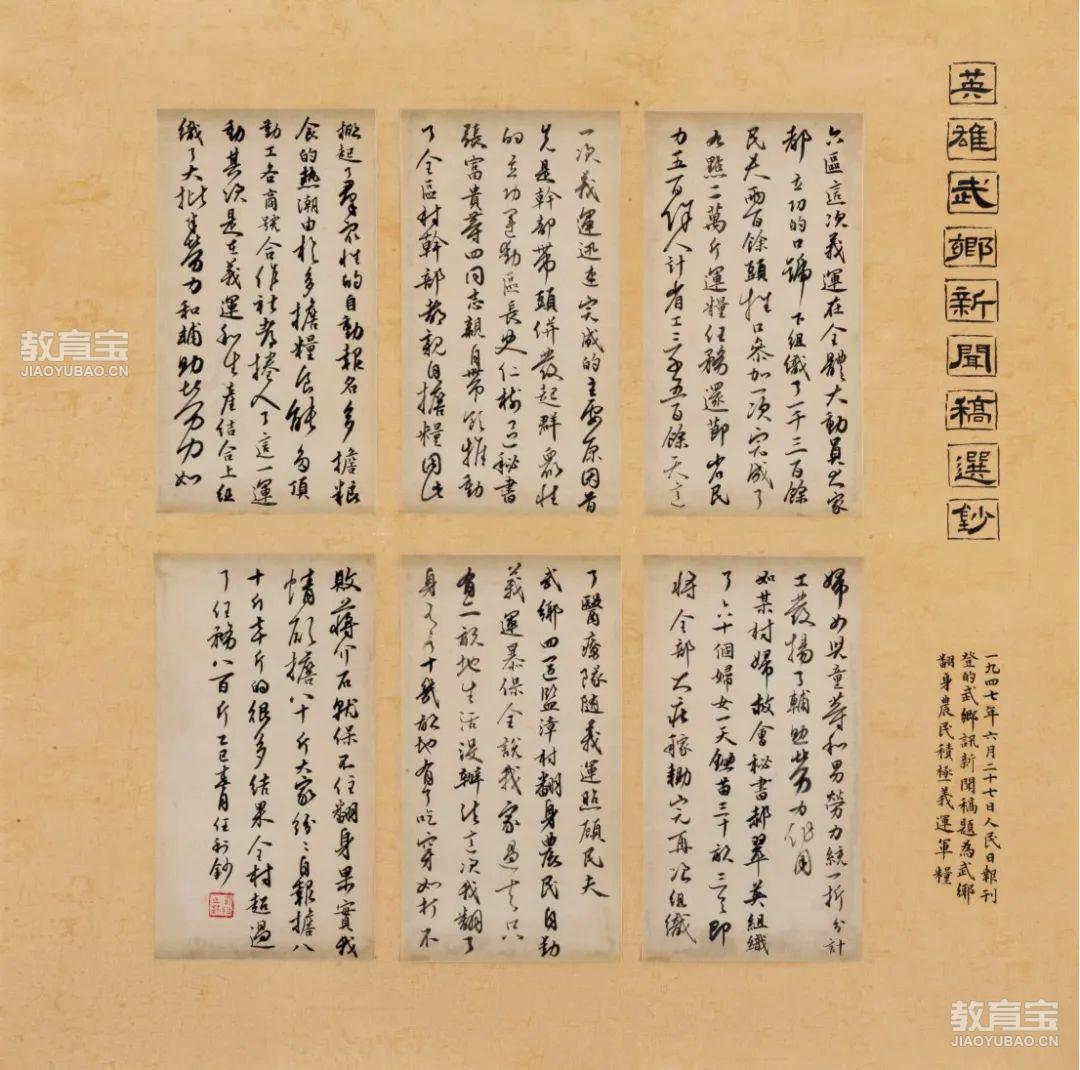 英雄武鄉新聞稿選鈔
一九四七年六月二十七日人民日報刊
登的武鄉訊新聞稿題為武鄉
翻身農民積極義運軍糧
六區這次義運在全體大動員大家
都立功的口號下組織了一千三百餘
民夫兩百餘頭牲口參加一次完成了
九點二萬斤運糧任務還節省民
力五百餘人計省工三千五百餘天這
一次義運迅速完成的主要原因首
先是幹部帶頭併發起群眾性
的立功運動區長史仁樹區秘書
張富貴等四同志親自帶領推動
了全區村幹部都親自擔糧因此
掀起了群眾性的自動報名多擔糧
食的熱潮由於多擔糧食能多頂
勤工各商號合作社都捲入了這一運
動其次是在義運和生產結合上組
織了大批半勞力和輔助勞力如
婦女兒童等和男勞力統一折分計
工發揚了輔助勞力作用
如某村婦救會秘書郝翠英組織
了六十個婦女一天鋤苗三十畝三天即
將全部大莊稼鋤完再次組織
了醫療隊隨義運照顧民夫
武鄉四區監漳村翻身農民自動
義運暴保全說我家過去只
有二畝地生活沒辦法這次我翻了
身有了十幾畝地有了吃穿如打不
敗蔣介石就保不住翻身果實我
情願擔八十斤大家紛紛自報擔八
十斤七十斤的很多結果全村超過
了任務八百斤 乙巳 月任 鈔
教育宝
JIAOYUBAO.CN
教育宝
JIAOYUBAO.CN